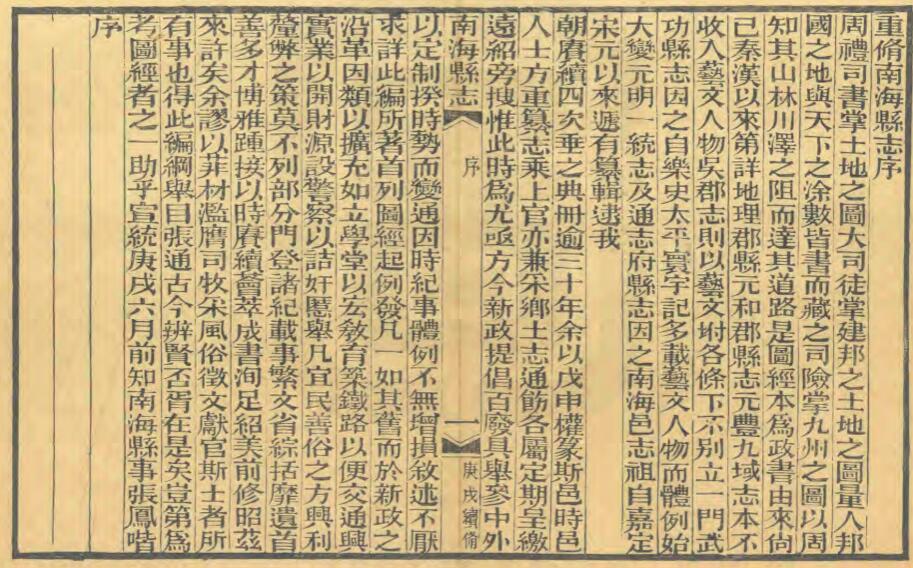 重脩南海縣志序
周禮司書掌土地之圖大司徒掌建邦之土地之圖量人邦
國之地與天下之涂數皆書而藏之司險掌九州之圖以周
知其山林川澤之阻而達其道路是圖經本爲政書由來尙
已秦漢以來第詳地理郡縣元和郡縣志元豐九域志本不
收入藝文人物吳郡志則以藝文坿各條下不別立一門武
功縣志因之自樂史太平寰宇記多載藝文人物而體例始
大變元明一統志及通志府縣志因之南海邑志祖自嘉定
宋元以來遞有纂輯逮我
朝賡續四次垂之典冊逾三十年余以戊申權篆斯邑時邑
人士方重纂志乘上官亦兼采鄉土志通飭各屬定期呈繳
遠紹旁搜惟此時爲尤亟方今新政提倡百廢具舉參中外
南海縣志
序
一
庚戌續脩
以定制揆時勢而變通因時紀事體例不無增損敘述不厭
求詳此編所著首列圖經起例發凡一如其舊而於新政之
沿革因類以擴充如立學堂以宏敎育築鐵路以便交通興
實業以開財源設警察以詰奸慝舉凡宜民善俗之方興利
釐弊之策莫不列部分門登諸紀載事繁文省綜括靡遺首
善多才博雅踵接以時賡續薈萃成書洵足紹美前修昭茲
來許矣余謬以菲材濫膺司牧采風俗徵文獻官斯土者所
有事也得此編綱舉目張通古今辨賢否胥在是矣豈第爲
考圖經者之一助乎宣統庚戌六月前知南海縣事張鳳喈
序